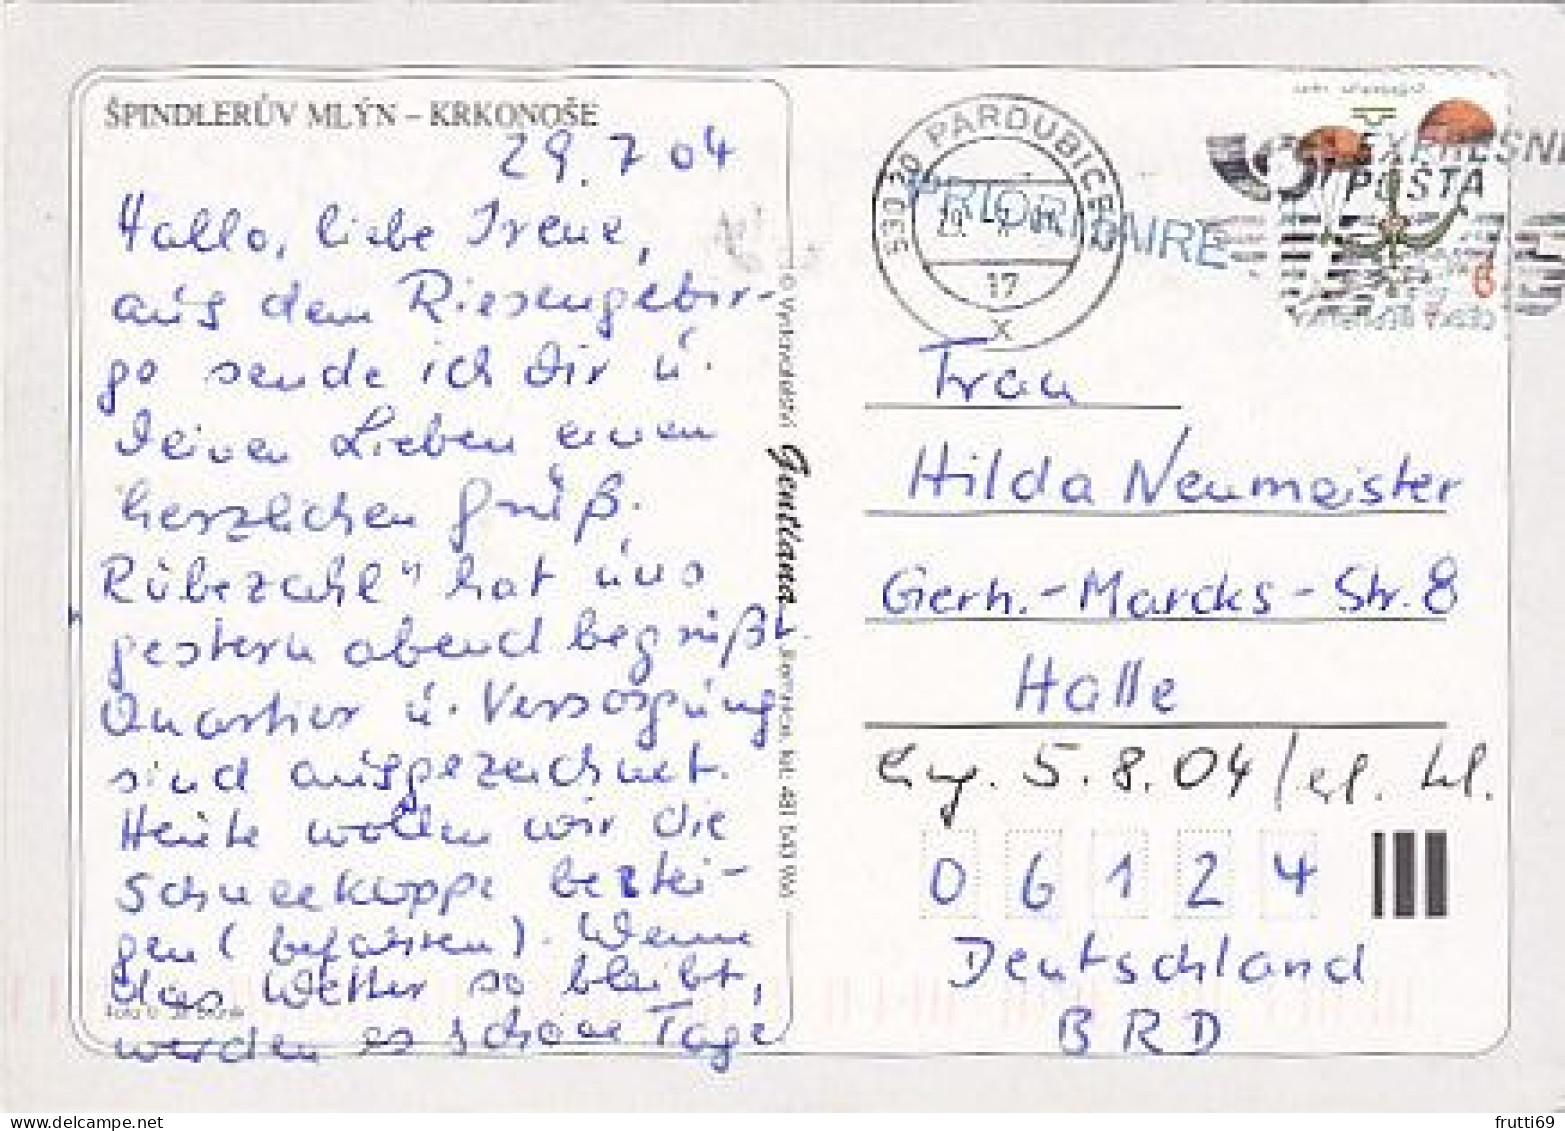 ŠPINDLERŮV MLÝN – KRKONOŠE
29. 7 04
Hallo, liebe Irene,
aus dem Riesengebir-
ge sende ich Dir u.
Deinen Lieben einen
herzlichen Gruß.
Rübezahl" hat uns
gestern abend begrüßt.
Quartier u. Versorgung
sind ausgezeichnet.
Heute wollen wir die
Schneekoppe bestei-
gen (befahren). Wenn
das Wetter so bleibt,
werden es schöne Tage
© Vydavatelství Gentiana
530 20 PARDUBICE
17
X
PRIORITAIRE
EXPRESNÍ
POSTA
ČESKÁ REPUBLIKA
6
Frau
Hilda Neumeister
Gerh.-Marcks-Str. 8
Halle
eing. 5.8.04/
06124
Deutschland
BRD
frutti69